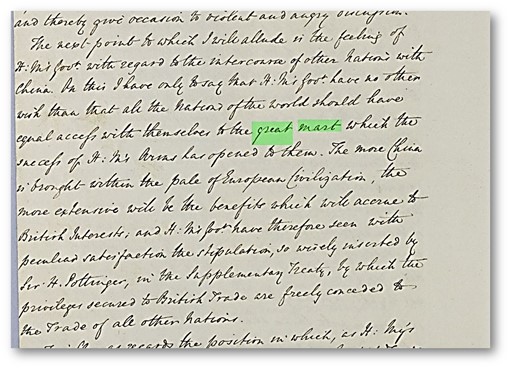 and thereby give occasion to violent and angry discussion.
The next point to which I will allude is the feeling of
H: M's Govt. with regard to the intercourse of other Nations with
China. On this I have only to say that H: M's Govt. have no other
wish than that all the Nations of the world should have
equal access with themselves to the great mart which the
success of H: M's Arms has opened to them. The more China
is brought within the pale of European Civilization, the
more extensive will be the benefits which will accrue to
British Interests, and H: M's Govt. have therefore seen with
peculiar satisfaction the stipulation, so wisely inserted by
Sir H. Pottinger, in the Supplementary Treaty, by which the
privileges secured to British Trade are freely conceded to
the Trade of all other Nations.
as regards the position in which, as H: M's